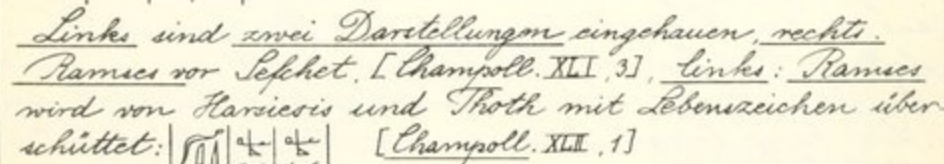 Links sind zwei Darstellungen eingehauen, rechts.
Ramses vor Sefchet. [Champoll. XLI, 3], links: Ramses
wird von Harsiesis und Thoth mit Lebenszeichen über
schüttet: [Champoll. XLII, 1]